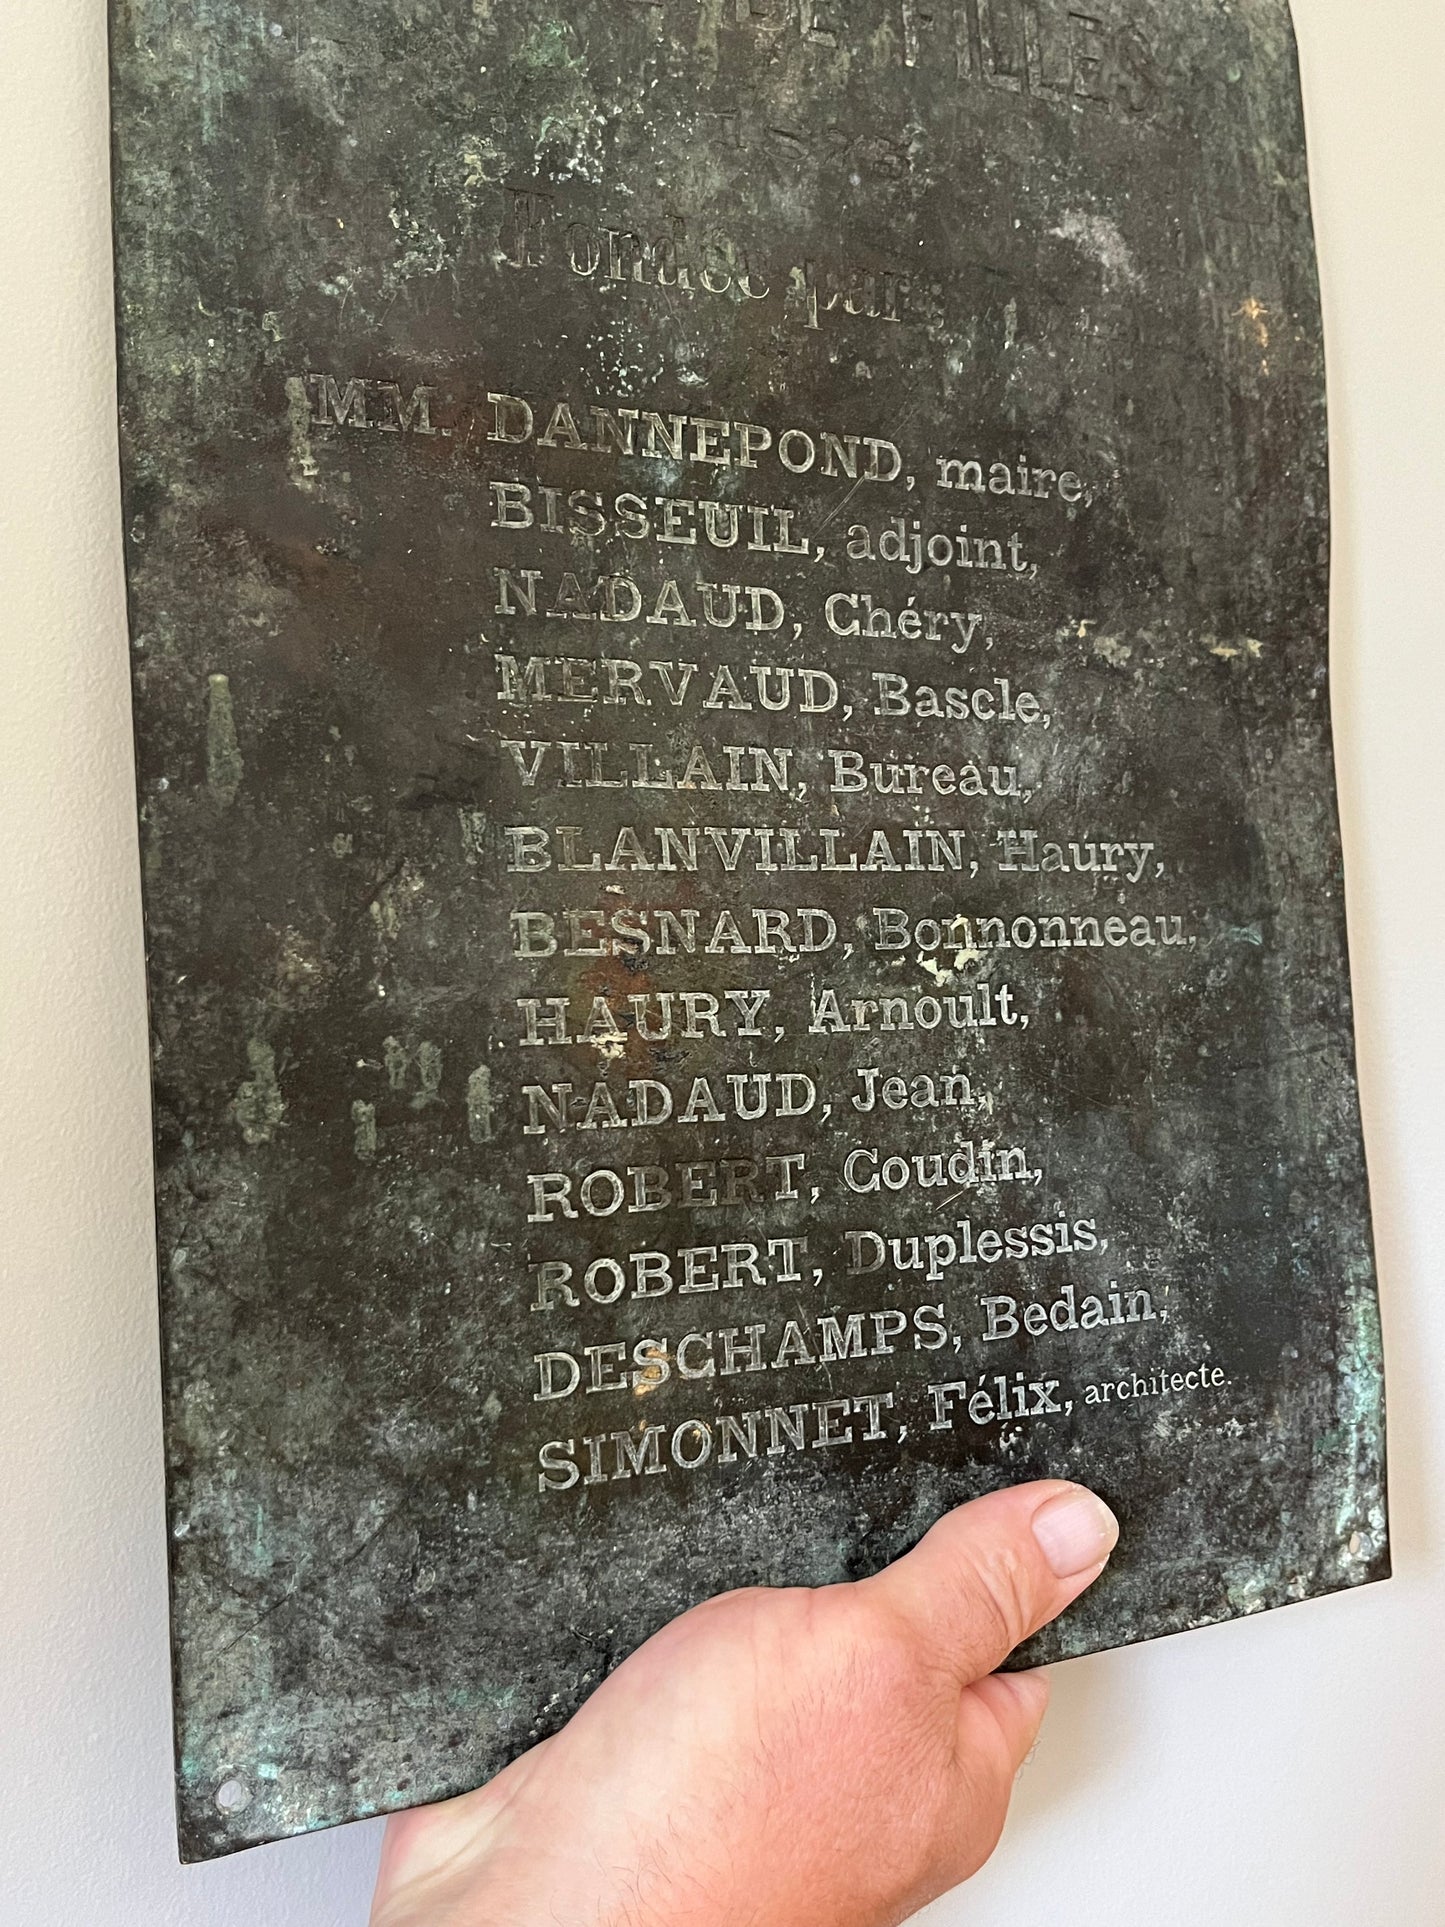 DE FILLES
1878
Fondée par :
MM. DANNEPOND, maire,
BISSEUIL, adjoint,
NADAUD, Chéry,
MERVAUD, Bascle,
VILLAIN, Bureau,
BLANVILLAIN, Haury,
BESNARD, Bonnonneau,
HAURY, Arnoult,
NADAUD, Jean,
ROBERT, Coudin,
ROBERT, Duplessis,
DESCHAMPS, Bedain,
SIMONNET, Félix, architecte.